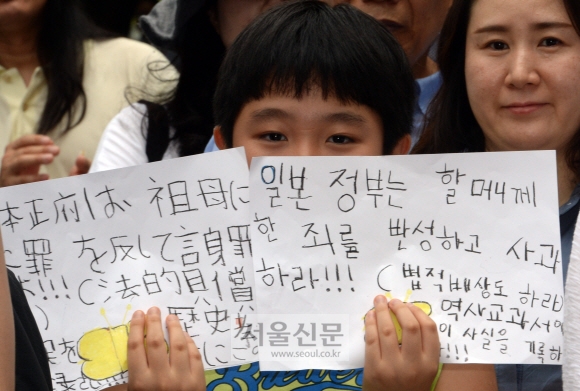 本正府は、祖母に
罪を反して謝罪
!!!(法的見償
歴史
일본 정부는 할머니께
한 죄를 반성하고 사과
하라!!! (법적배상도 하라
역사교과서에
이 사실을 기록하
!!!
서울신문
www.seoul.co.kr